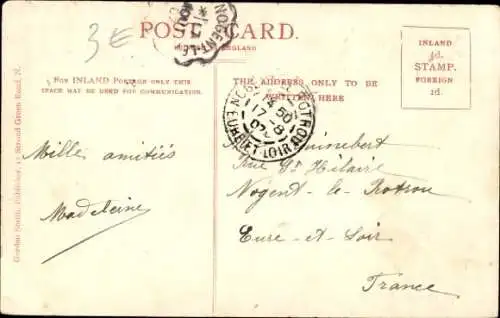 3€
POST CARD.
NOGENT
INLAND
½d.
STAMP.
FOREIGN
1d.
FOR INLAND POSTAGE ONLY THIS
SPACE MAY BE USED FOR COMMUNICATION.
THE ADDRESS ONLY TO BE
WRITTEN HERE
50
17-8
07
EURE-ET-LOIR
Mille amitiés
Madeleine
Rue St Hilaire
Nogent-le-Rotrou
Eure-et-Loir
France
Gordon Smith, Publisher, 15 Stroud Green Road, N.